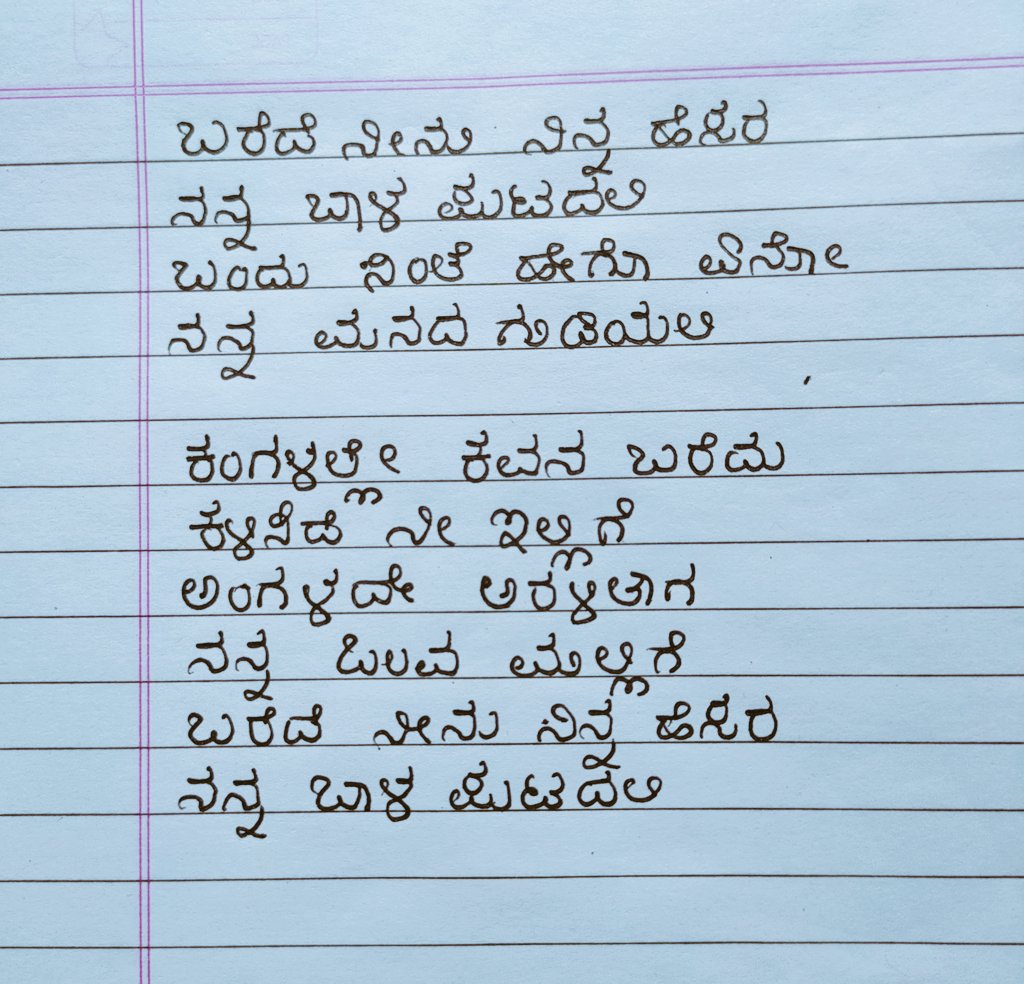 ಬರೆದೆ ನೀನು ನಿನ್ನ ಹೆಸರ
ನನ್ನ ಬಾಳ ಪುಟದಲಿ
ಬಂದು ನಿಂತೆ ಹೇಗೊ ಏನೋ
ನನ್ನ ಮನದ ಗುಡಿಯಲಿ
ಕಂಗಳಲ್ಲೇ ಕವನ ಬರೆದು
ಕಳಿಸಿದೆ ನೀ ಇಲ್ಲಿಗೆ
ಅಂಗಳದೇ ಅರಳಿತಾಗ
ನನ್ನ ಒಲವ ಮಲ್ಲಿಗೆ
ಬರೆದೆ ನೀನು ನಿನ್ನ ಹೆಸರ
ನನ್ನ ಬಾಳ ಪುಟದಲಿ